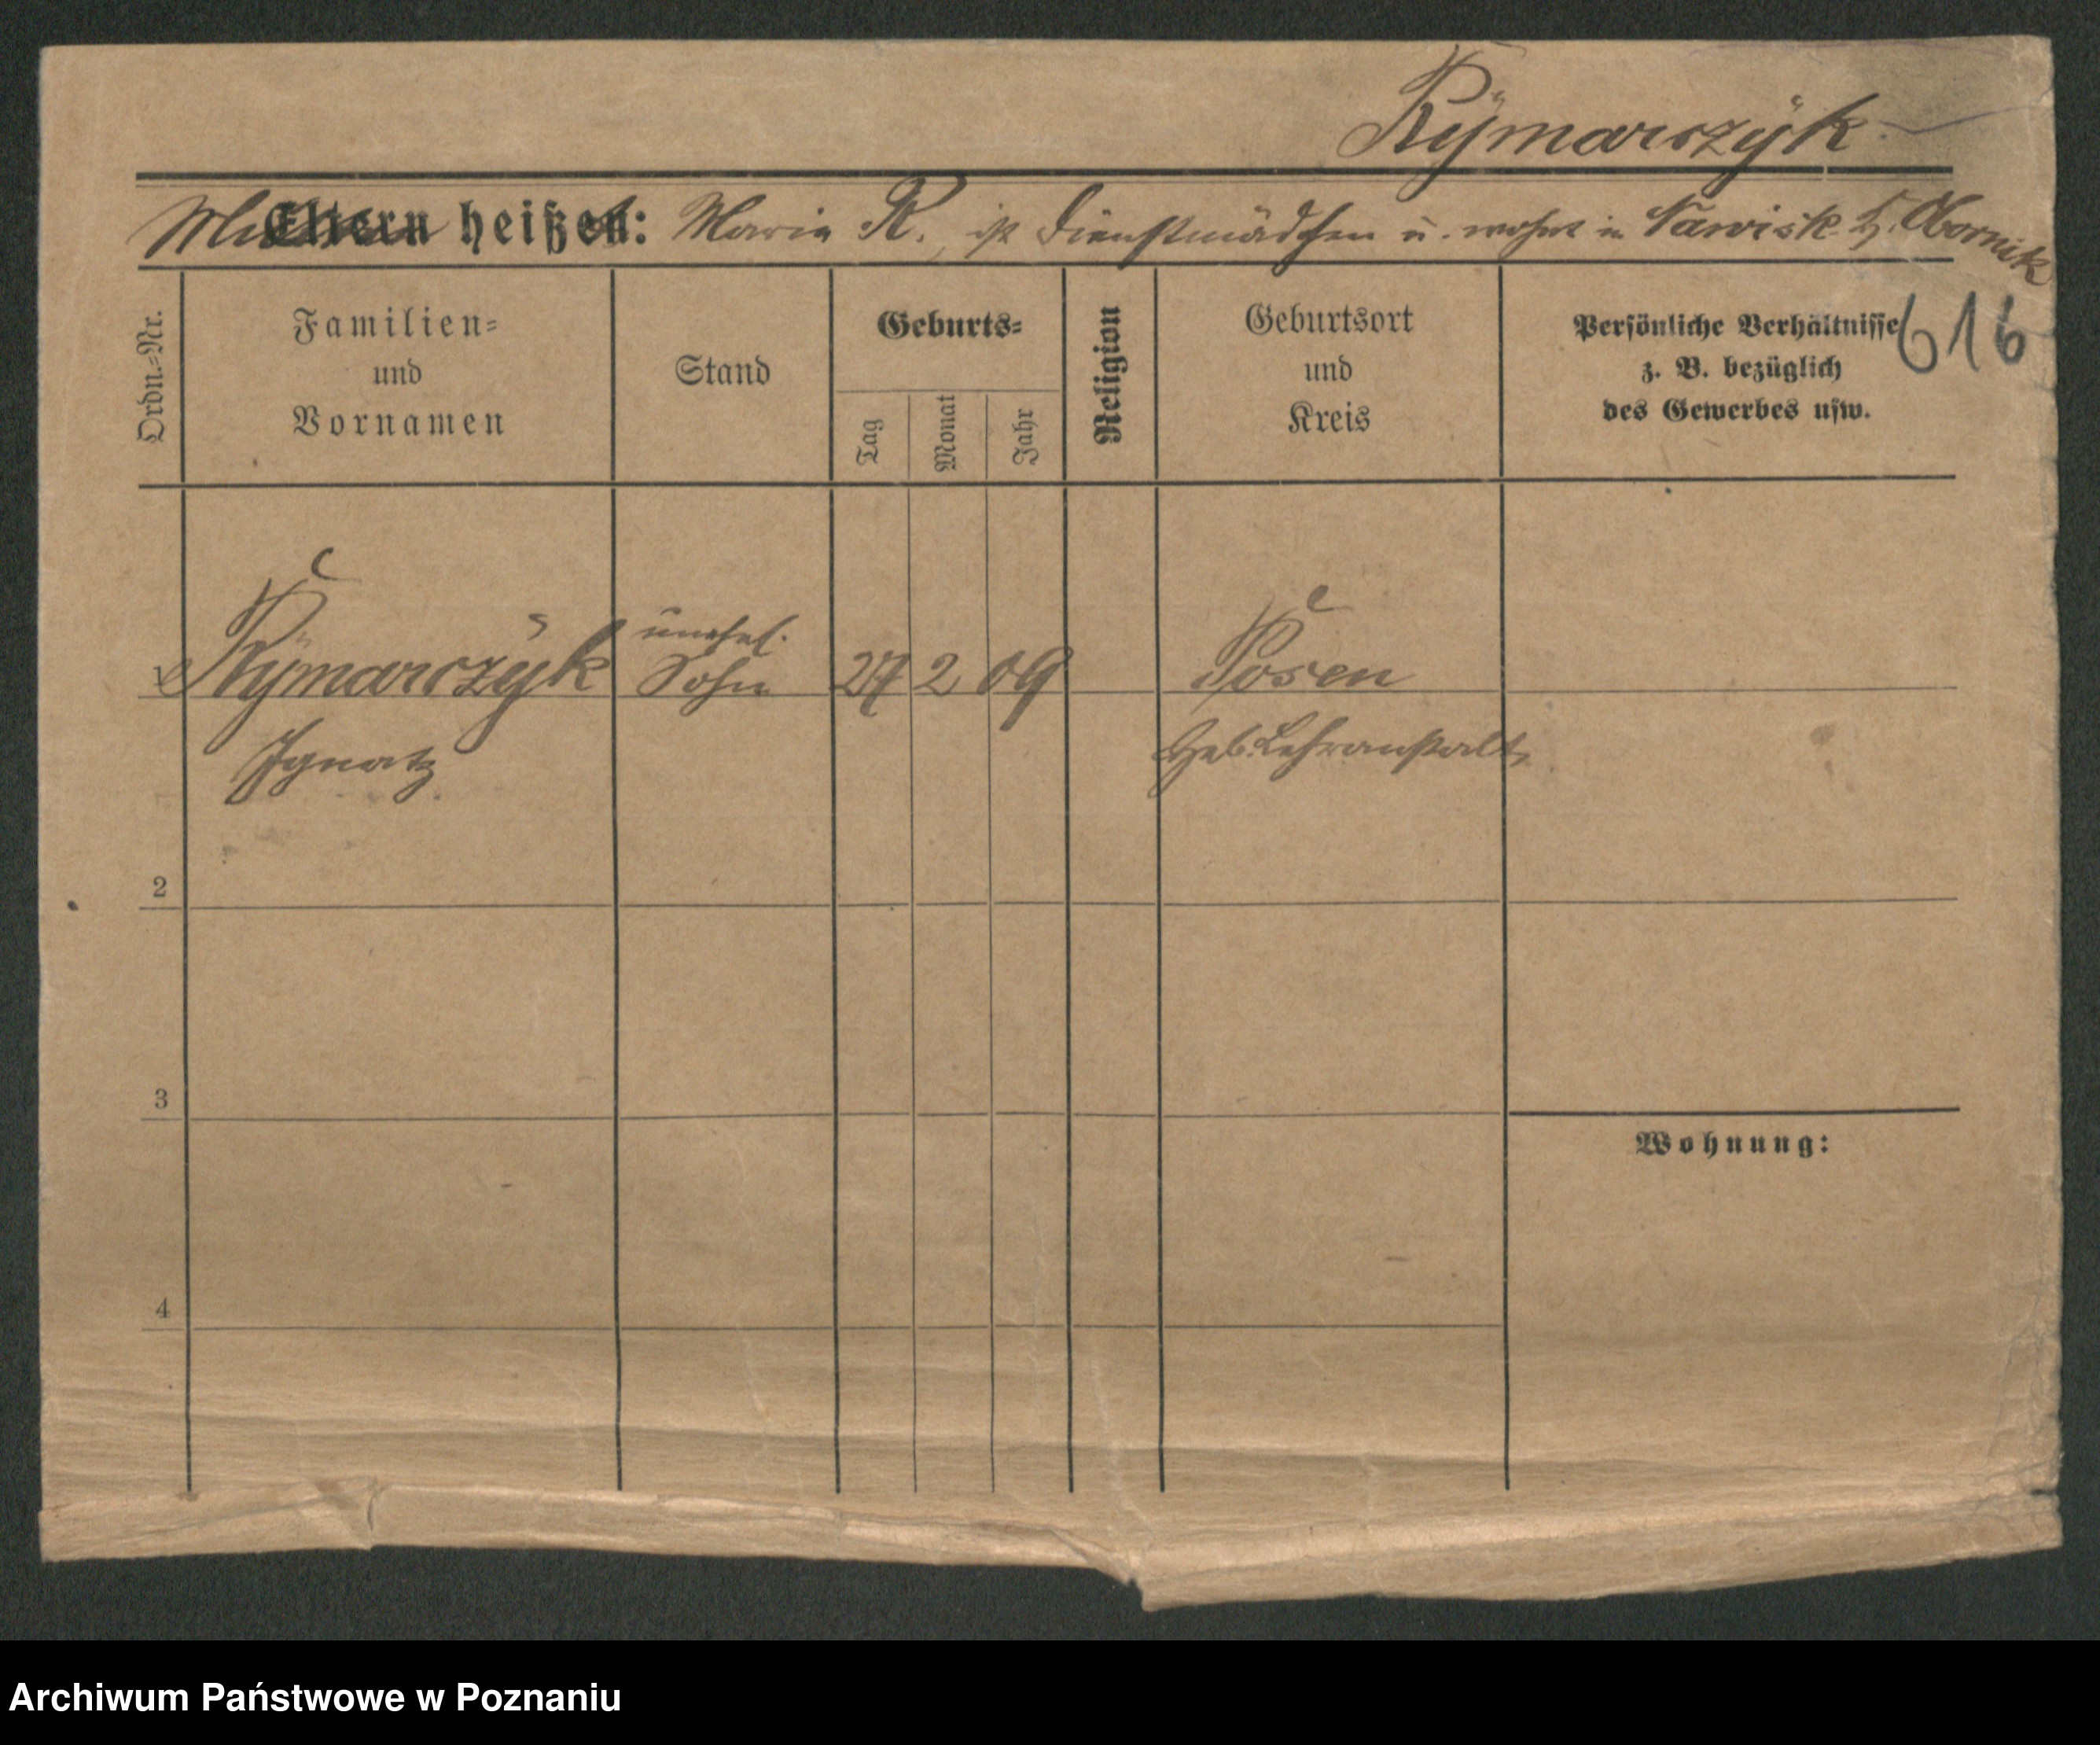 Rÿmarszÿk
Mutter Eltern heißen: heißt Marie R., ist Dienstmädchen u. wohnt in K. Obornik
616
Ordn.-Nr.
Familien-
und
Vornamen
Stand
Geburts-
Tag
Monat
Jahr
Religion
Geburtsort
und
Kreis
Persönliche Verhältnisse
z. B. bezüglich
des Gewerbes usw.
1 Rÿmarszÿk unehel. Sohn 27 2 09 Posen
Ignatz Heb. Lehranstalt
2
3
Wohnung:
4
Archiwum Państwowe w Poznaniu